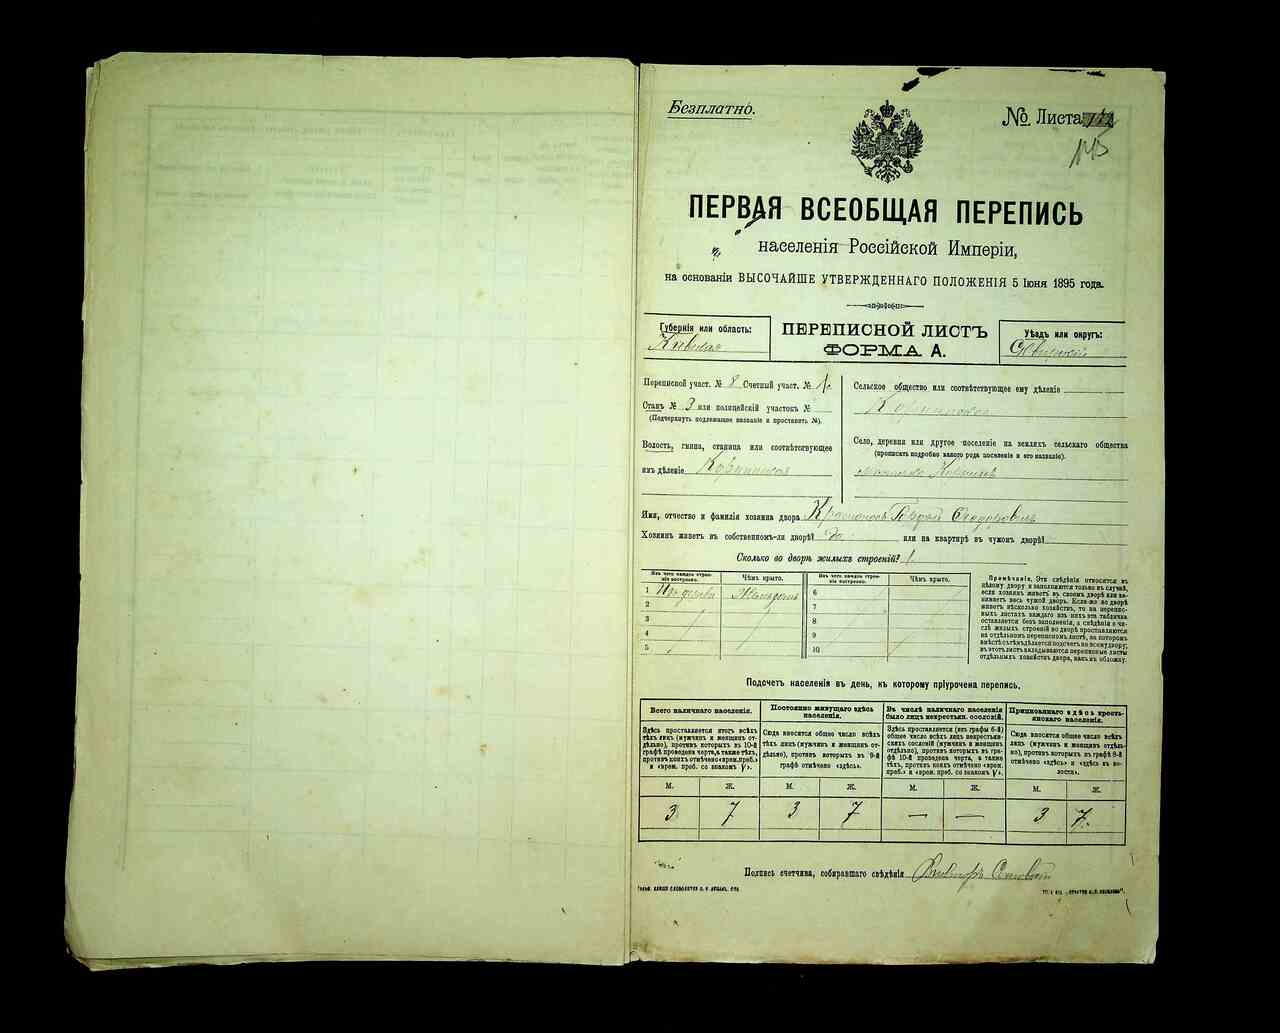 Безплатно.
№ Листа
ПЕРВАЯ ВСЕОБЩАЯ ПЕРЕПИСЬ
населенія Россійской Имперіи,
на основаніи ВЫСОЧАЙШЕ УТВЕРЖДЕННАГО ПОЛОЖЕНІЯ 5 Іюня 1895 года.
Губернія или область:
Кіевская
ПЕРЕПИСНОЙ ЛИСТЪ
ФОРМА А.
Уѣздъ или округъ:
Сквирскій
Переписной участ. № 8 Счетный участ. №
Станъ № 3 или полицейскій участокъ №
(Подчеркнуть подлежащее названіе и проставить №).
Волость, гмина, станица или соотвѣтствующее
имъ дѣленіе Корнинская
Сельское общество или соотвѣтствующее ему дѣленіе
Корнинское
Село, деревня или другое поселеніе на земляхъ сельскаго общества
(прописать подробно какого рода поселеніе и его названіе).
мѣстечко Корнинъ
Имя, отчество и фамилія хозяина двора
Хозяинъ живетъ въ собственномъ-ли дворѣ? да или на квартирѣ въ чужомъ дворѣ?
Сколько во дворѣ жилыхъ строеній? 1
Изъ чего каждое строеніе построено. Чѣмъ крыто. Изъ чего каждое строеніе построено. Чѣмъ крыто.
1 Изъ дерева 6
2 7
3 8
4 9
5 10
Примѣчаніе. Эти свѣдѣнія относятся къ
цѣлому двору и заполняются только въ случаѣ,
если хозяинъ живетъ въ своемъ дворѣ или занимаетъ
весь чужой дворъ. Если-же во дворѣ
живетъ нѣсколько хозяйствъ, то на переписныхъ
листахъ каждаго изъ нихъ эта табличка
оставляется безъ заполненія, а свѣдѣнія о числѣ
жилыхъ строеній во дворѣ проставляются
на отдѣльномъ переписномъ листѣ, на которомъ
вмѣстѣ съ тѣмъ дѣлается подсчетъ по всему двору;
въ этотъ листъ вкладываются переписные листы
отдѣльныхъ хозяйствъ двора, какъ въ обложку.
Подсчетъ населенія въ день, къ которому пріурочена перепись.
Всего наличнаго населенія.
Здѣсь проставляется итогъ всѣхъ
тѣхъ лицъ (мужчинъ и женщинъ отдѣльно),
противъ которыхъ въ 10-й
графѣ проведена черта, а также тѣхъ,
противъ коихъ отмѣчено «врем. преб.»
и «врем. преб. со знакомъ V».
Постоянно живущаго здѣсь
населенія.
Сюда вносится общее число всѣхъ
тѣхъ лицъ (мужчинъ и женщинъ отдѣльно),
противъ которыхъ въ 9-й
графѣ отмѣчено «здѣсь».
Въ числѣ наличнаго населенія
было лицъ некрестьян. сословій.
Здѣсь проставляется (изъ графы 6-й)
общее число всѣхъ лицъ некрестьянскихъ
сословій (мужчинъ и женщинъ
отдѣльно), противъ которыхъ въ графѣ
10-й проведена черта, а также
тѣхъ, противъ коихъ отмѣчено «врем.
преб.» и «врем. преб. со знакомъ V».
Приписаннаго здѣсь крестьянскаго
населенія.
Сюда вносится общее число всѣхъ
лицъ (мужчинъ и женщинъ отдѣльно),
противъ которыхъ въ графѣ 8-й
отмѣчено «здѣсь» и «здѣсь въ волости».
М. Ж. М. Ж. М. Ж. М. Ж.
3 7 3 7 — — 3 7.
Подпись счетчика, собиравшаго свѣдѣнія